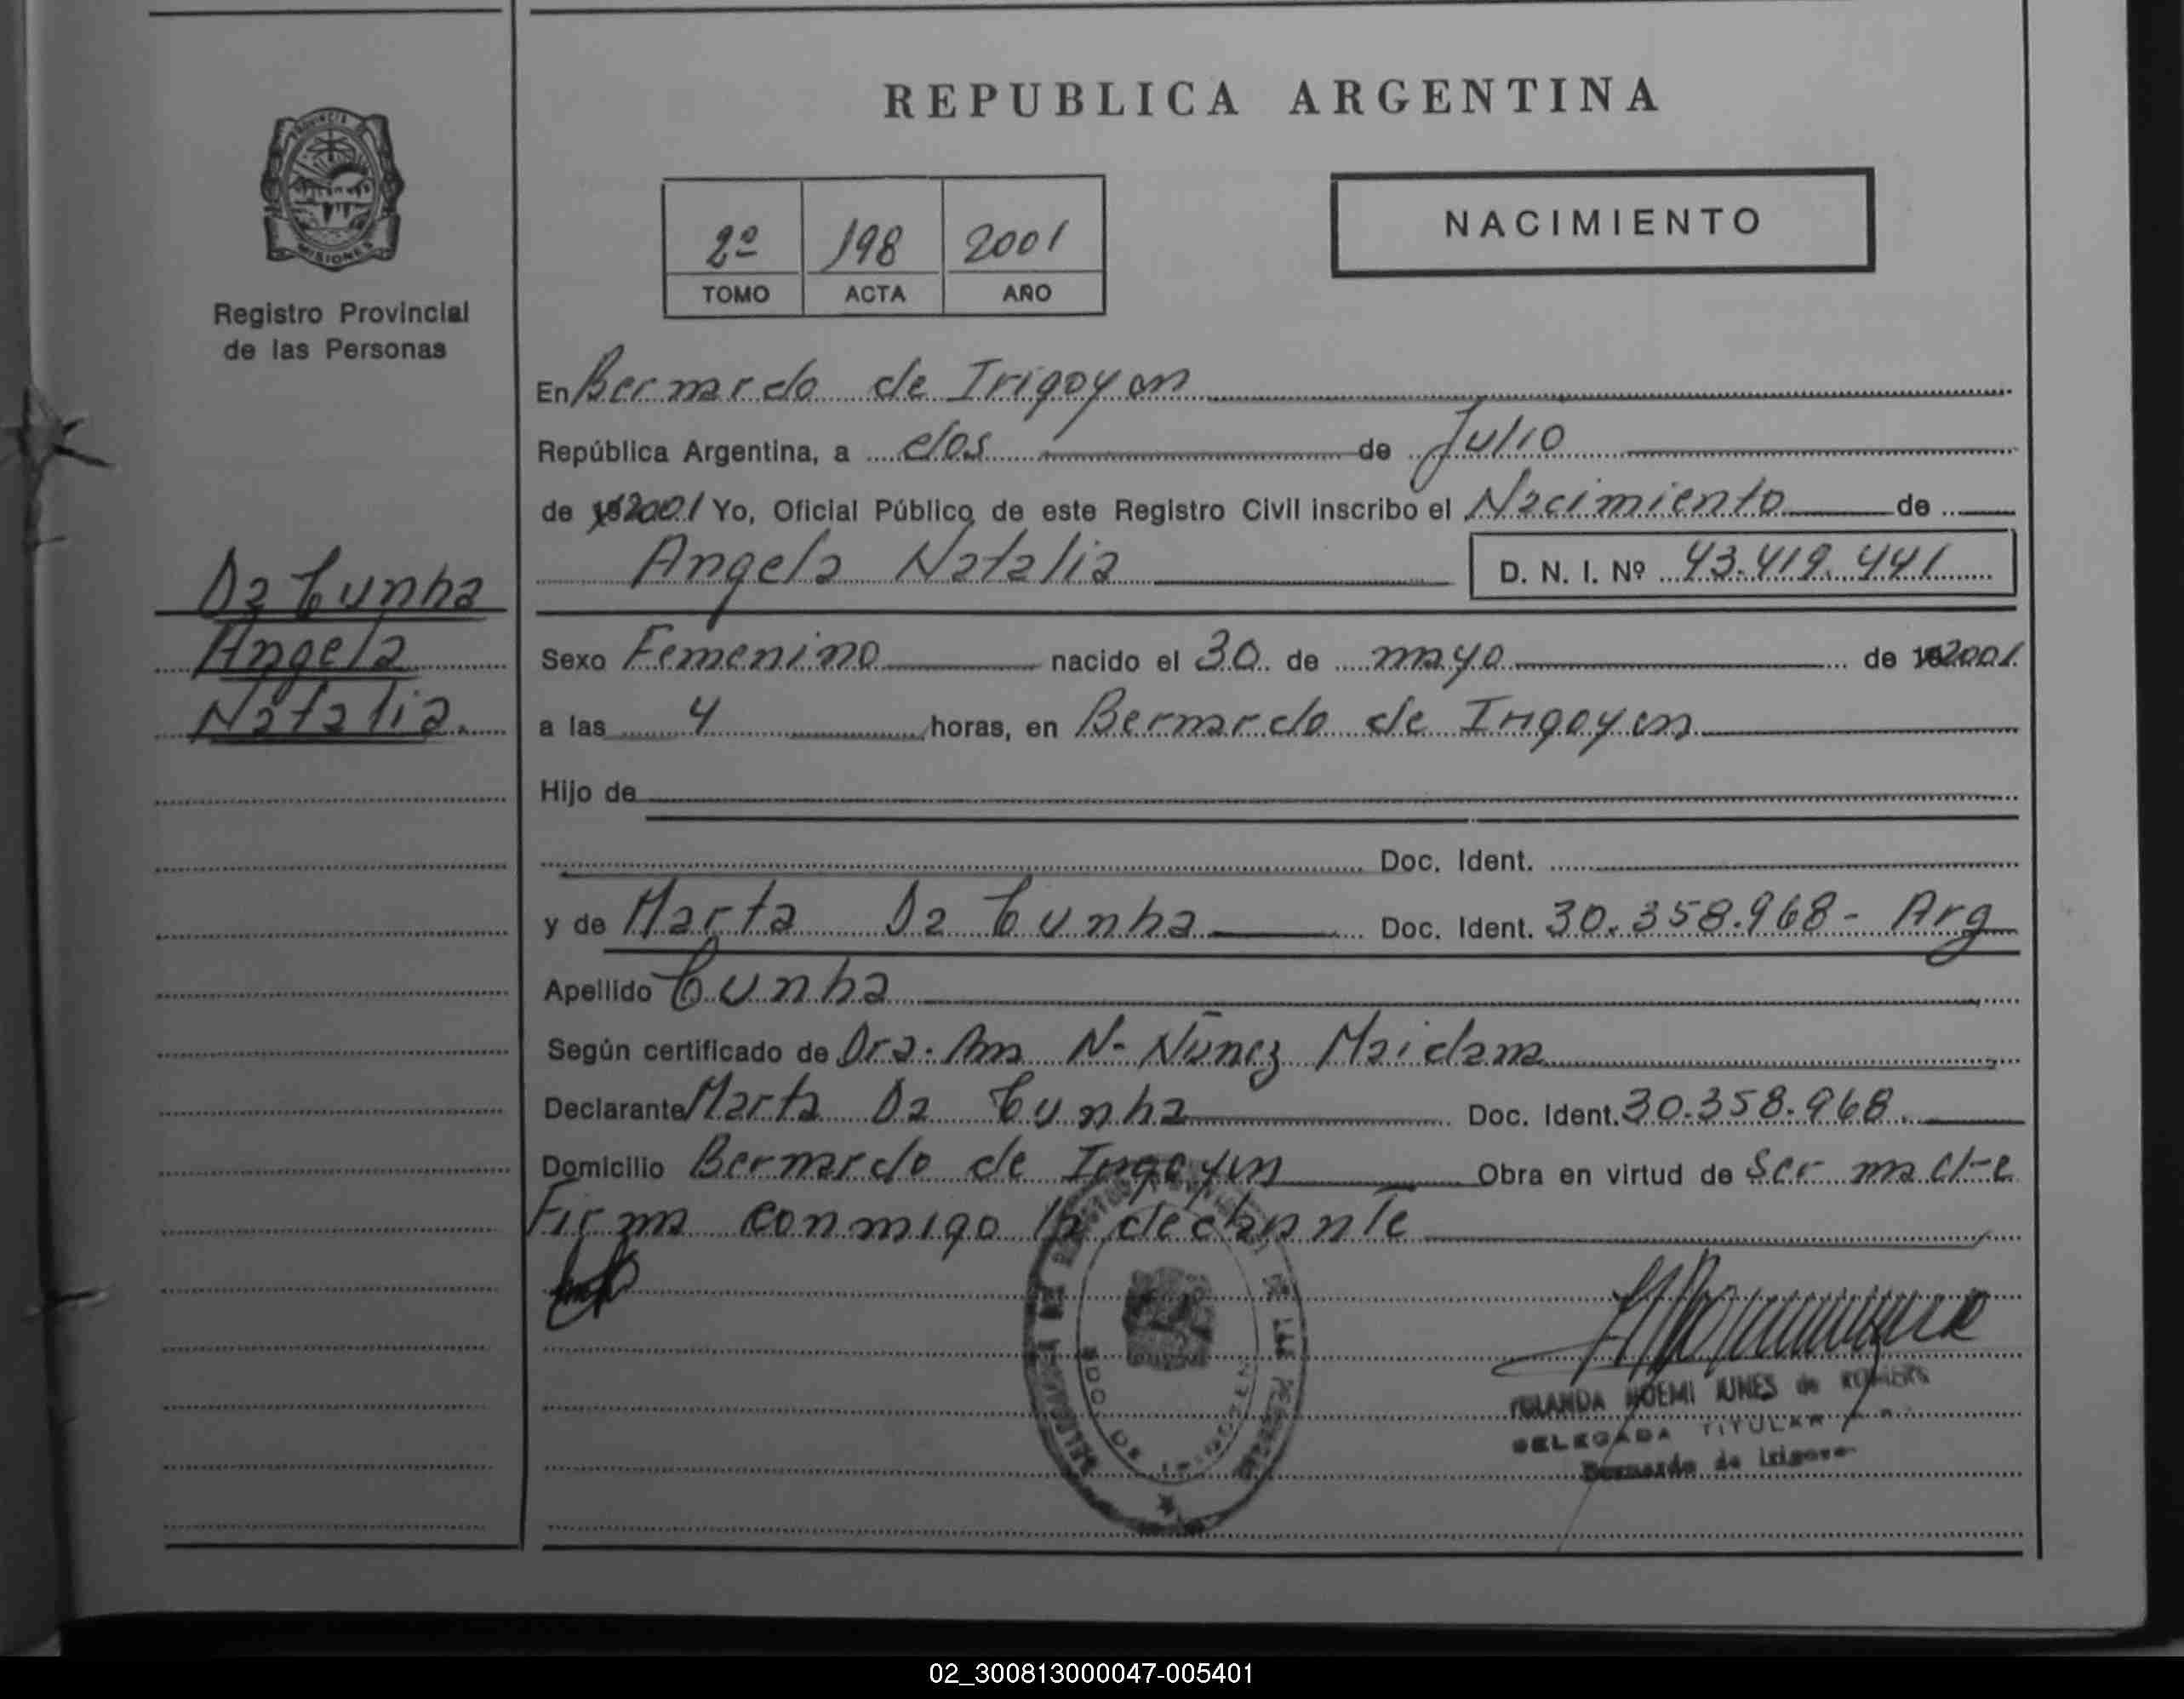 REPUBLICA ARGENTINA
PROVINCIA
MISIONES
Registro Provincial
de las Personas
2º 198 2001
TOMO ACTA AÑO
NACIMIENTO
En Bernardo de Irigoyen
República Argentina, a dos de Julio
de 2001 Yo, Oficial Público de este Registro Civil inscribo el Nacimiento de
Angela Natalia D. N. I. Nº 43.419.441
Da Cunha
Angela
Natalia.
Sexo Femenino nacido el 30 de mayo de 2001
a las 4 horas, en Bernardo de Irigoyen
Hijo de
Doc. Ident.
y de Marta Da Cunha Doc. Ident. 30.358.968- Arg
Apellido Cunha
Según certificado de Dra. Ana N. Núñez Maidana
Declarante Marta Da Cunha Doc. Ident. 30.358.968
Domicilio Bernardo de Irigoyen Obra en virtud de Ser madre
Firma conmigo la declarante
NOEMI de
DELEGADA TITULAR
Bernardo de Irigoyen
02_300813000047-005401